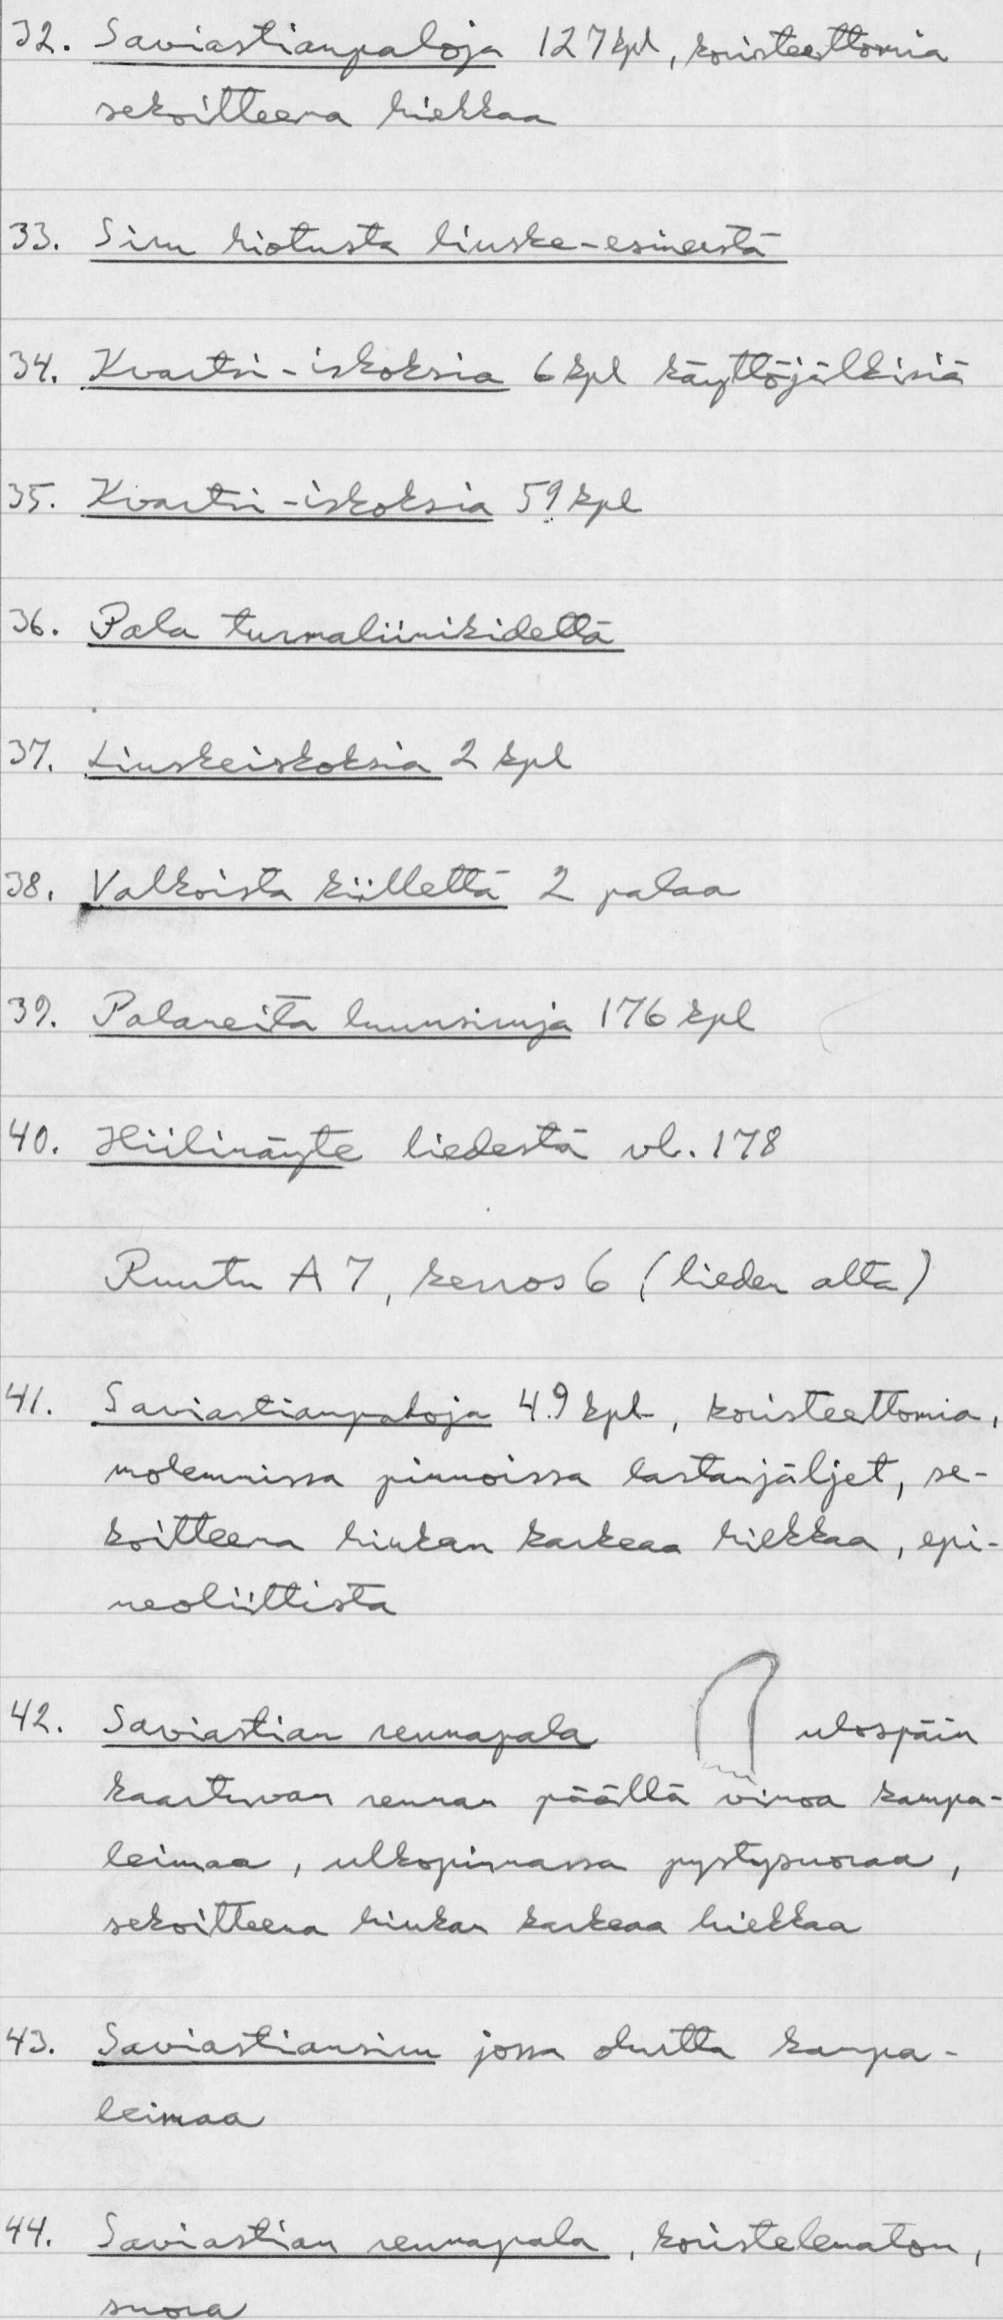 32. Saviastianpaloja 127 kpl, koristeettomia
sekoitteena hiekkaa
33. Siru hiotusta liuske-esineestä
34. Kvartsi-iskoksia 6 kpl käyttöjälkisiä
35. Kvartsi-iskoksia 59 kpl
36. Pala turmaliinikidettä
37. Liuskeiskoksia 2 kpl
38. Valkoista kiillettä 2 palaa
39. Palaneita luunsiruja 176 kpl
40. Hiilinäyte liedestä vl. 178
Ruutu A 7, kerros 6 (lieden alta)
41. Saviastianpaloja 49 kpl, koristeettomia,
molemmissa pinnoissa lastanjäljet, se-
koitteena hiukan karkeaa hiekkaa, epi-
neoliittista
42. Saviastian reunapala ulospäin
kaartuvan reunan päällä vinoa kampa-
leimaa, ulkopinnassa pystysuoraa,
sekoitteena hiukan karkeaa hiekkaa
43. Saviastiansiru jossa ohutta kampa-
leimaa
44. Saviastian reunapala, koristelematon,
suora